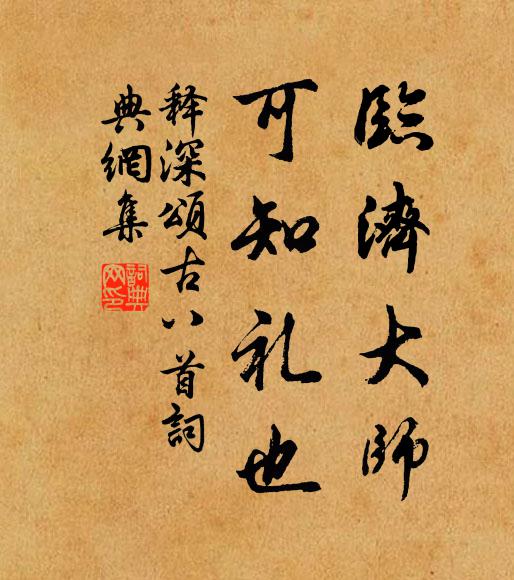 臨濟大師
可知礼也
释深頌古八首詞
典網集
詞典网印